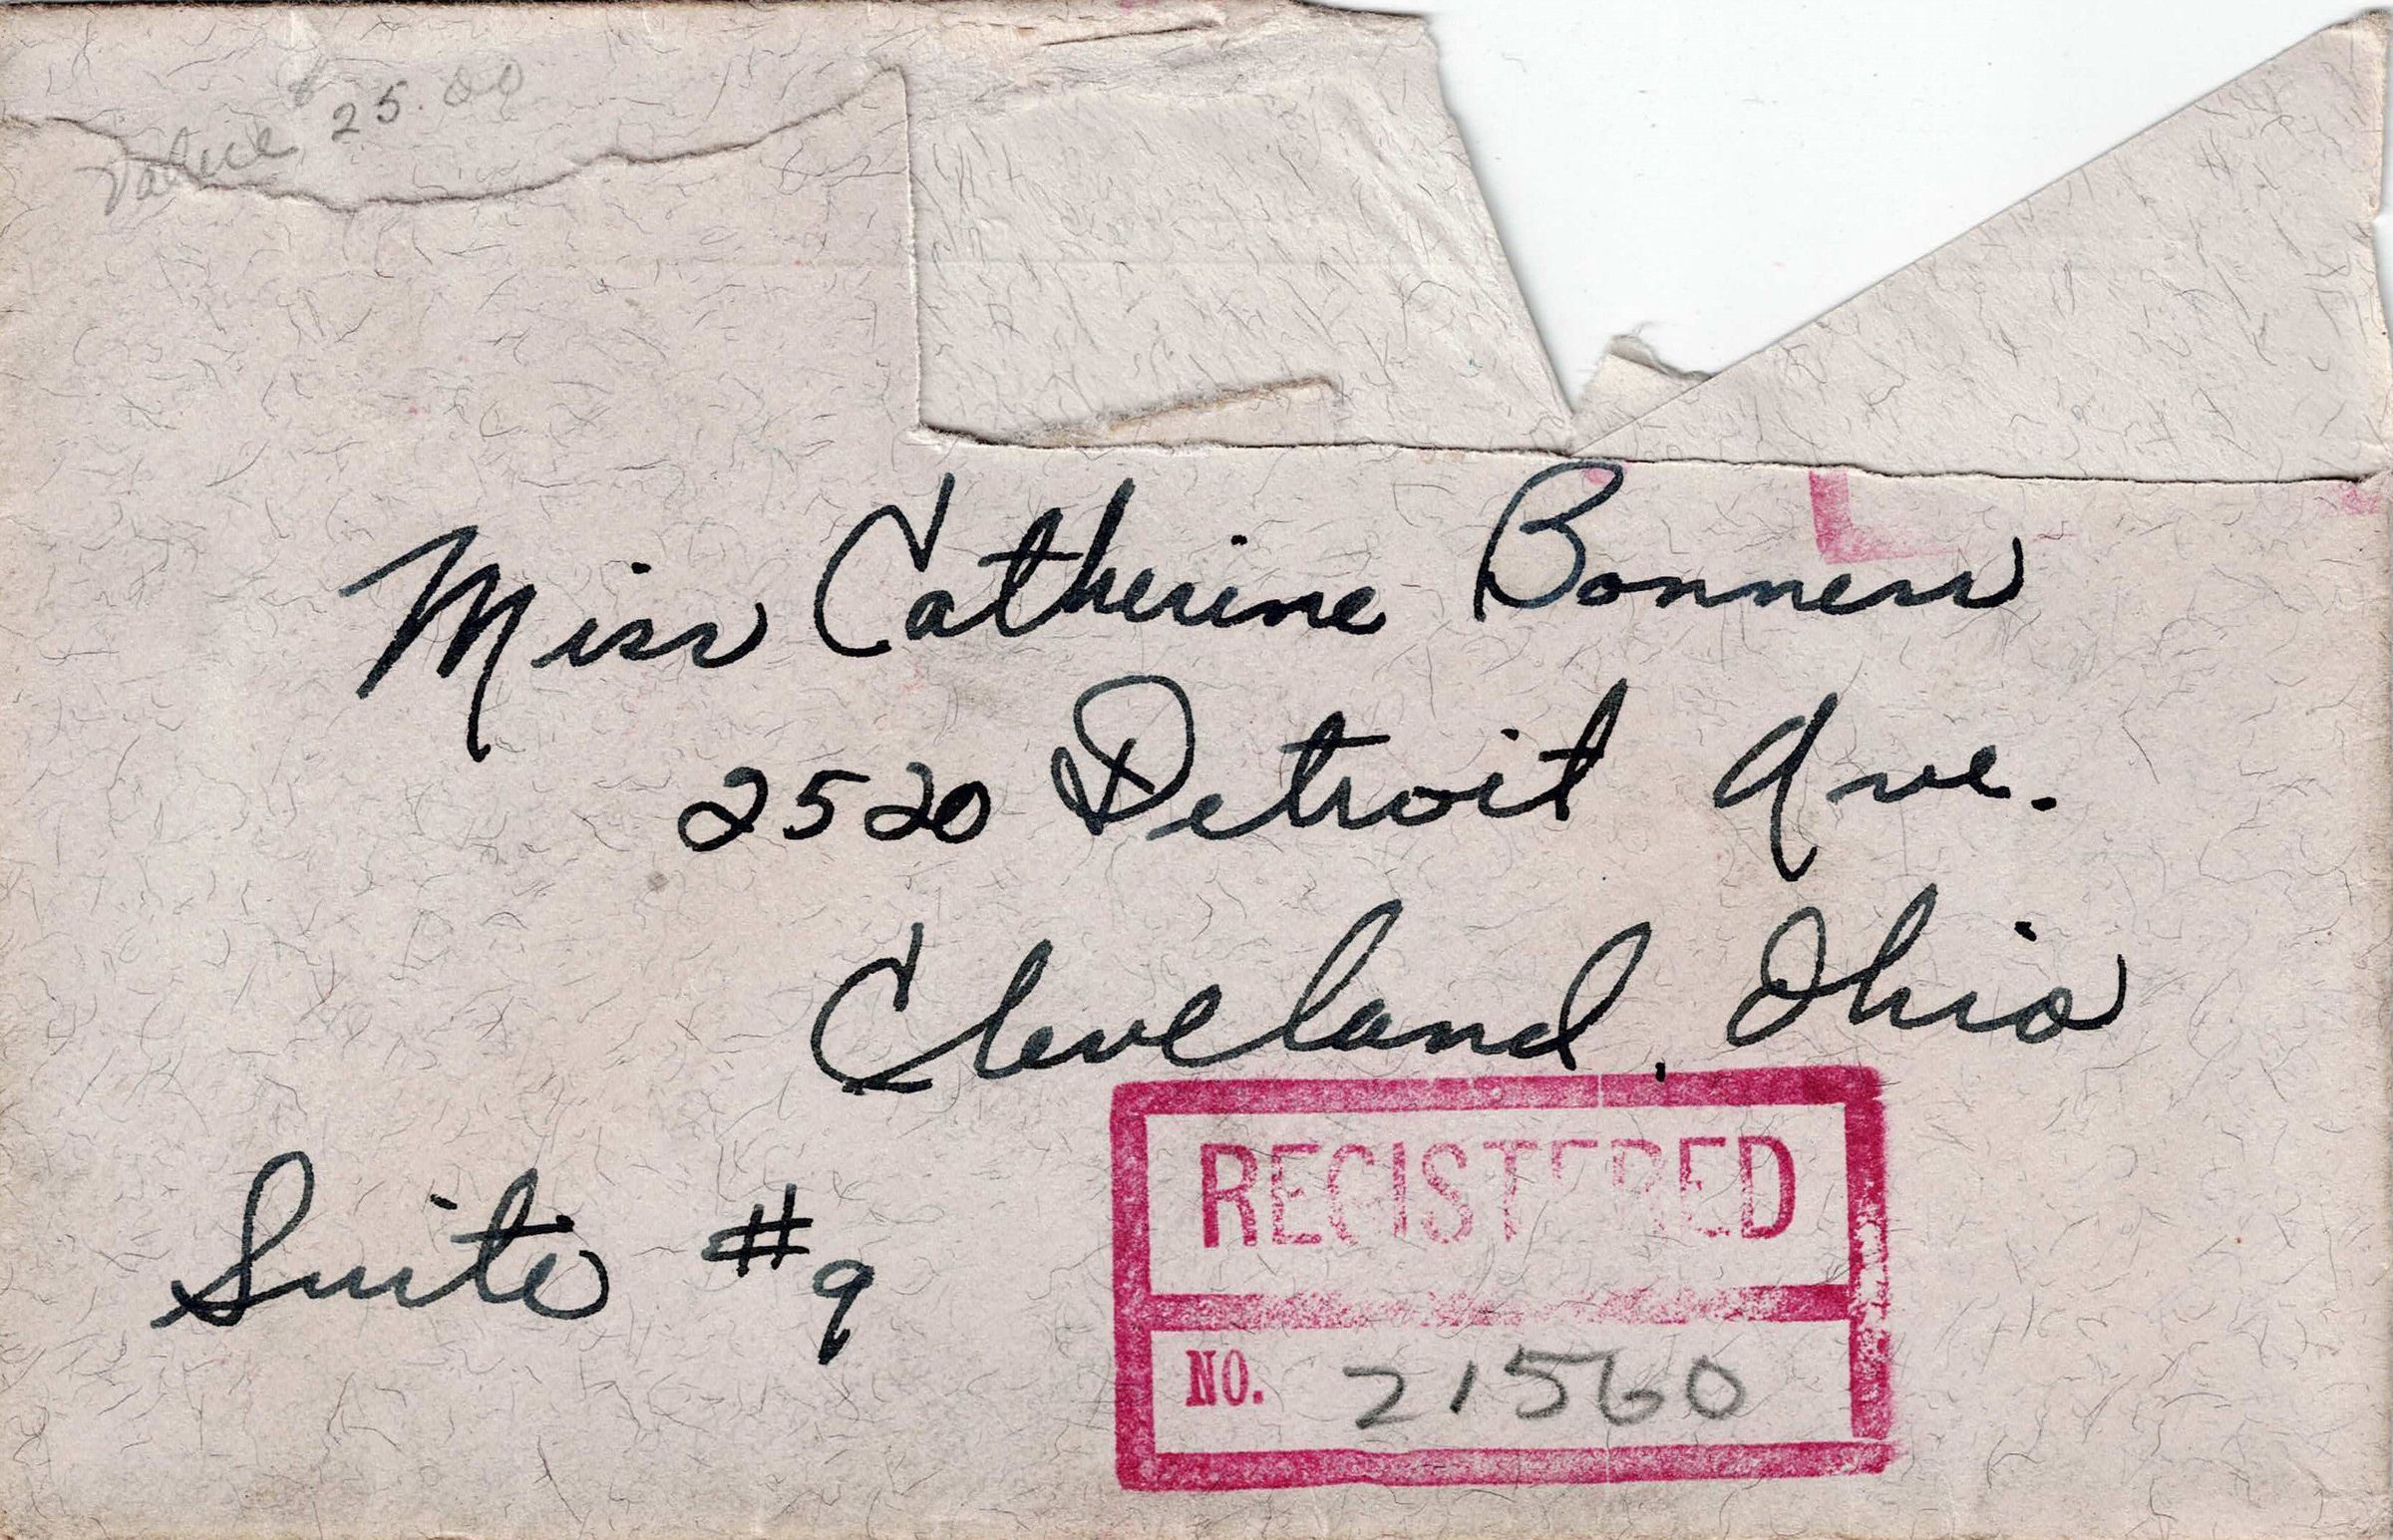 Value $25.00
Miss Catherine Bonness
2520 Detroit Ave.
Cleveland, Ohio
Suite #9
REGISTERED
NO. 21560